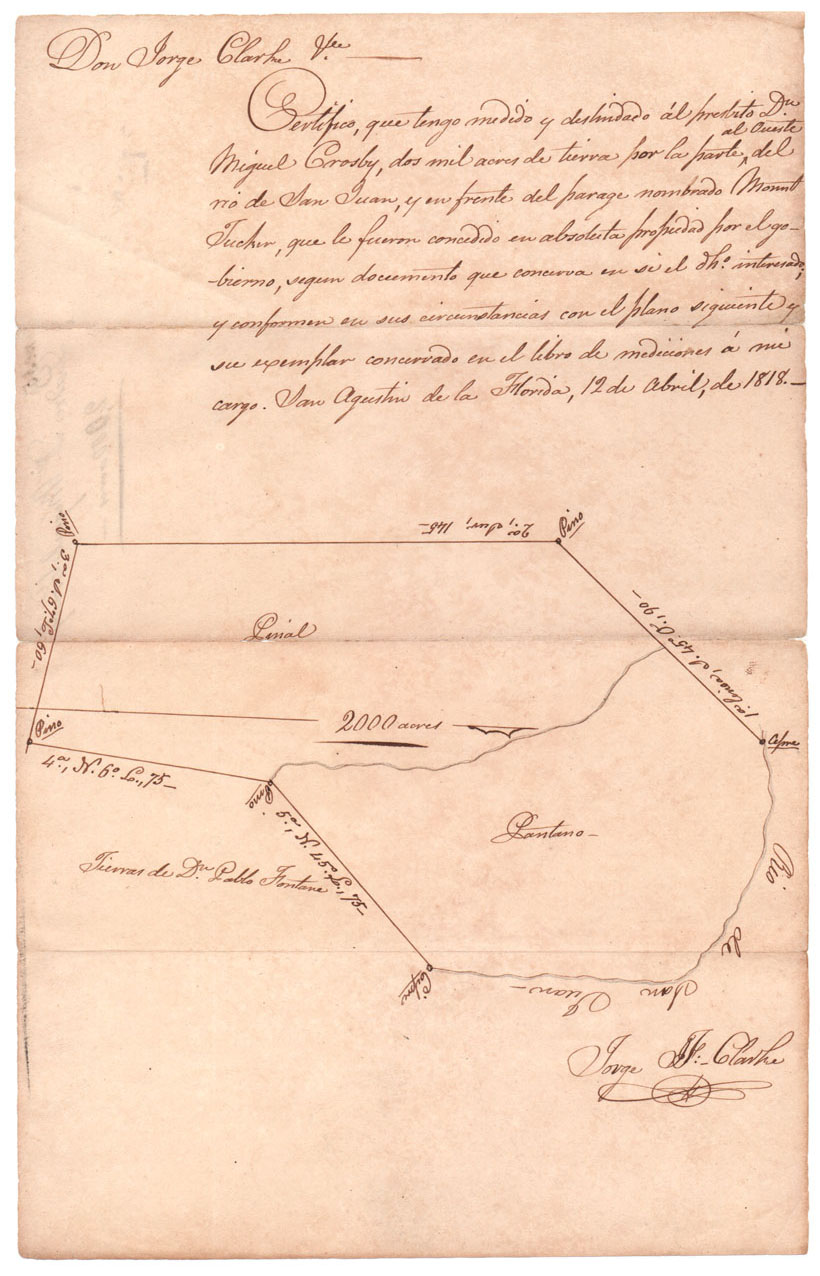 Don Jorge Clarke &ce
Certifico, que tengo medido y deslindado ál presbito Dn
Miguel Crosby, dos mil acres de tierra por la parte al Oueste del
rio de San Juan, y en frente del parage nombrado Mount
Tucker, que le fueron concedido en absoluta propiedad por el go-
-bierno, segun documento que concerva en si el dho. interesado;
y conformen en sus circunstancias con el plano siguiente y
su exemplar concervado en el libro de mediciones á mi
cargo. San Agustin de la Florida, 12 de Abril, de 1818.-
Pino
2a, Sur, 145
Pino
3a, S. 76° E, 60-
Pinal
1a linea, S. 45° O, 90-
2000 acres
Pino
Cipre
4a, N. 6° E., 75-
Pino
5a, N. 54° E., 75-
Pantano-
Tierras de Dn. Pablo Fontane
Rio de San Juan-
Cipre
Jorge J. F. Clarke